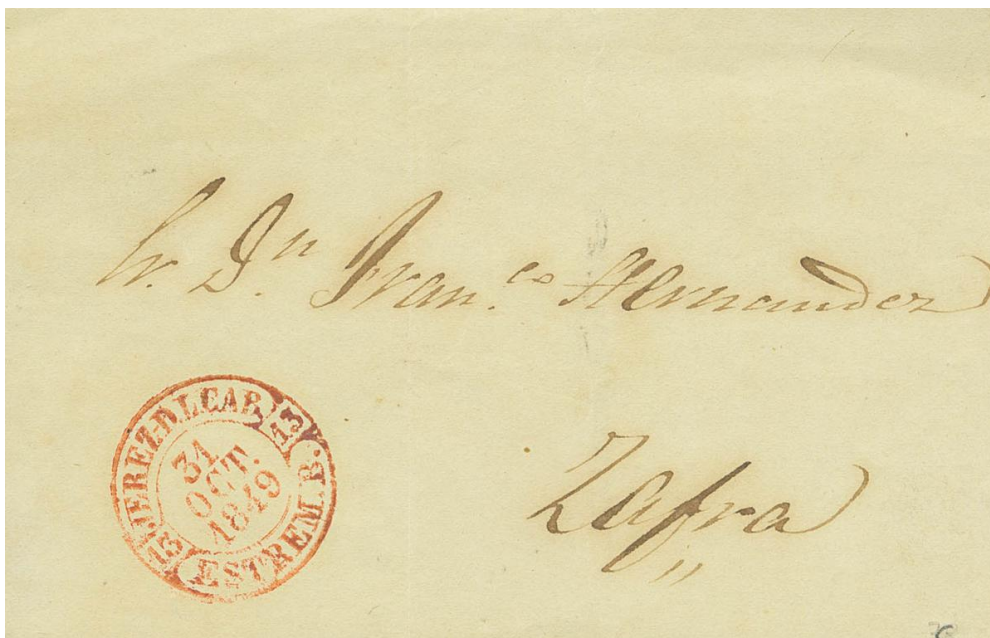 Sr. Dn. Franco. Hernandez
Zafra
JEREZ-D-LCAB.
13
31
OCT.
1849
13
ESTREM.R.